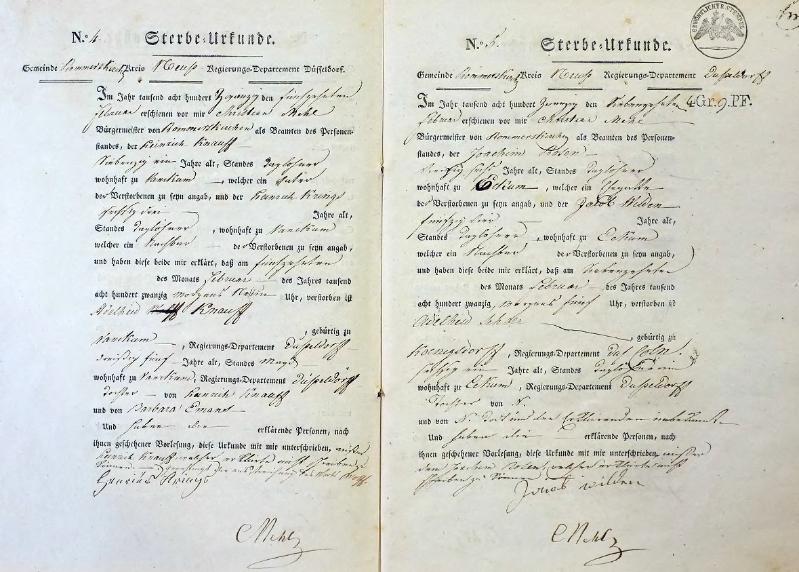 N.º 4. Sterbe-Urkunde.
Gemeinde Rommerskirch Kreis Neuss Regierungs-Departement Düsseldorf.
Im Jahr tausend acht hundert Zwanzig den fünfzehnten
Februar erschienen vor mir Christian Mehl
Bürgermeister von Rommerskirchen als Beamten des Personen-
standes, der Heinrich Knauff
siebenzig ein Jahre alt, Standes Taglöhner
wohnhaft zu Vanikum welcher ein Vater
des Verstorbenen zu seyn angab, und der Heinrich Krings
Jahre alt,
Standes Taglöhner, wohnhaft zu Vanikum
welcher ein Nachbar der Verstorbenen zu seyn angab,
und haben diese beide mir erklärt, daß am fünfzehnten
des Monats Februar des Jahres tausend
acht hundert zwanzig morgens Uhr, verstorben ist
Adelheid Knauff
, gebürtig zu
Vanikum, Regierungs-Departement Düsseldorff
dreißig fünf Jahre alt, Standes Magd
wohnhaft zu Vanikum, Regierungs-Departement Düsseldorff
Tochter von Heinrich Knauff
und von Barbara Emans
Und haben die erklärende Personen, nach
ihnen geschehener Vorlesung, diese Urkunde mit mir unterschrieben, außer
Henrich Knauff welcher erklärte nicht schreiben
Henrich Krings
CMehl
N.º 5. Sterbe-Urkunde.
Gemeinde Rommerskirch Kreis Neuss Regierungs-Departement Dusseldorff
4 Gr. 9. PF.
Im Jahr tausend acht hundert Zwanzig den siebenzehnten
Februar erschienen vor mir Christian Mehl
Bürgermeister von Rommerskirchen als Beamten des Personen-
standes, der Joachim
Jahre alt, Standes Taglöhner
wohnhaft zu Eckum, welcher ein
des Verstorbenen zu seyn angab, und der Jacob Wilden
fünfzig drei Jahre alt,
Standes Taglöhner, wohnhaft zu Eckum
welcher ein Nachbar der Verstorbenen zu seyn angab,
und haben diese beide mir erklärt, daß am siebenzehnten
des Monats Februar des Jahres tausend
acht hundert zwanzig morgens fünf Uhr, verstorben ist
Adelheid
, gebürtig zu
Koenigsdorff, Regierungs-Departement Cöln.
sechzig ein Jahre alt, Standes Taglöhnerin
wohnhaft zu Eckum, Regierungs-Departement Dusseldorff
Tochter von N.
und von N. beide den Erklärenden unbekannt
Und haben die erklärende Personen, nach
ihnen geschehener Vorlesung, diese Urkunde mit mir unterschrieben, außer
dem Joachim welcher erklärte nicht
schreiben zu können
Jacob wilden
CMehl